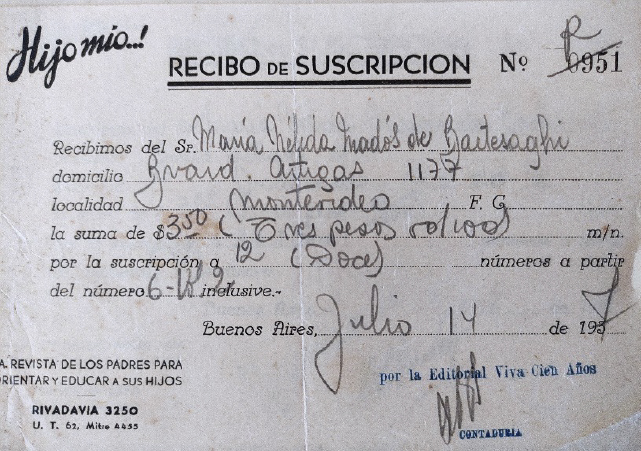 Hijo mío..!
RECIBO DE SUSCRIPCION Nº 0951
Recibimos del Sr. María Nélida de
domicilio Bvard. Artigas 1177
localidad Montevideo F. C.
la suma de $ 3.50 (Tres pesos 50/100) m/n.
por la suscripción a 12 (Doce) números a partir
del número 6- inclusive.-
Buenos Aires, Julio 14 de 1937
A. REVISTA DE LOS PADRES PARA
ORIENTAR Y EDUCAR A SUS HIJOS
por la Editorial Viva Cien Años
RIVADAVIA 3250
U. T. 62, Mitre 4455
CONTADURIA